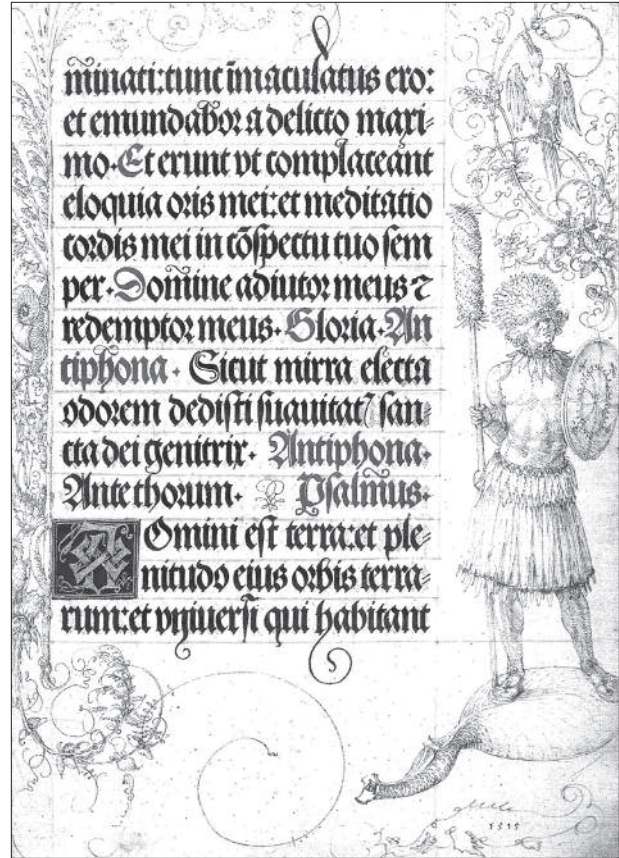 m̄inati:tunc īmaculatus ero:
et emundabor a delicto maxi=
mo. Et erunt vt complaceant
eloquia oris mei:et meditatio
cordis mei in cōspectu tuo sem
per. Dom̄ine adiutor meus ⁊
redemptor meus. Gloria. An
tiphona. Sicut mirra electa
odorem dedisti suauitatꝭ san=
cta dei genitrix. Antiphona.
Ante thorum. Psalm̄us.
DOmini est terra:et ple=
nitudo eius orbis terra=
rum:et vniuersi qui habitant
1515